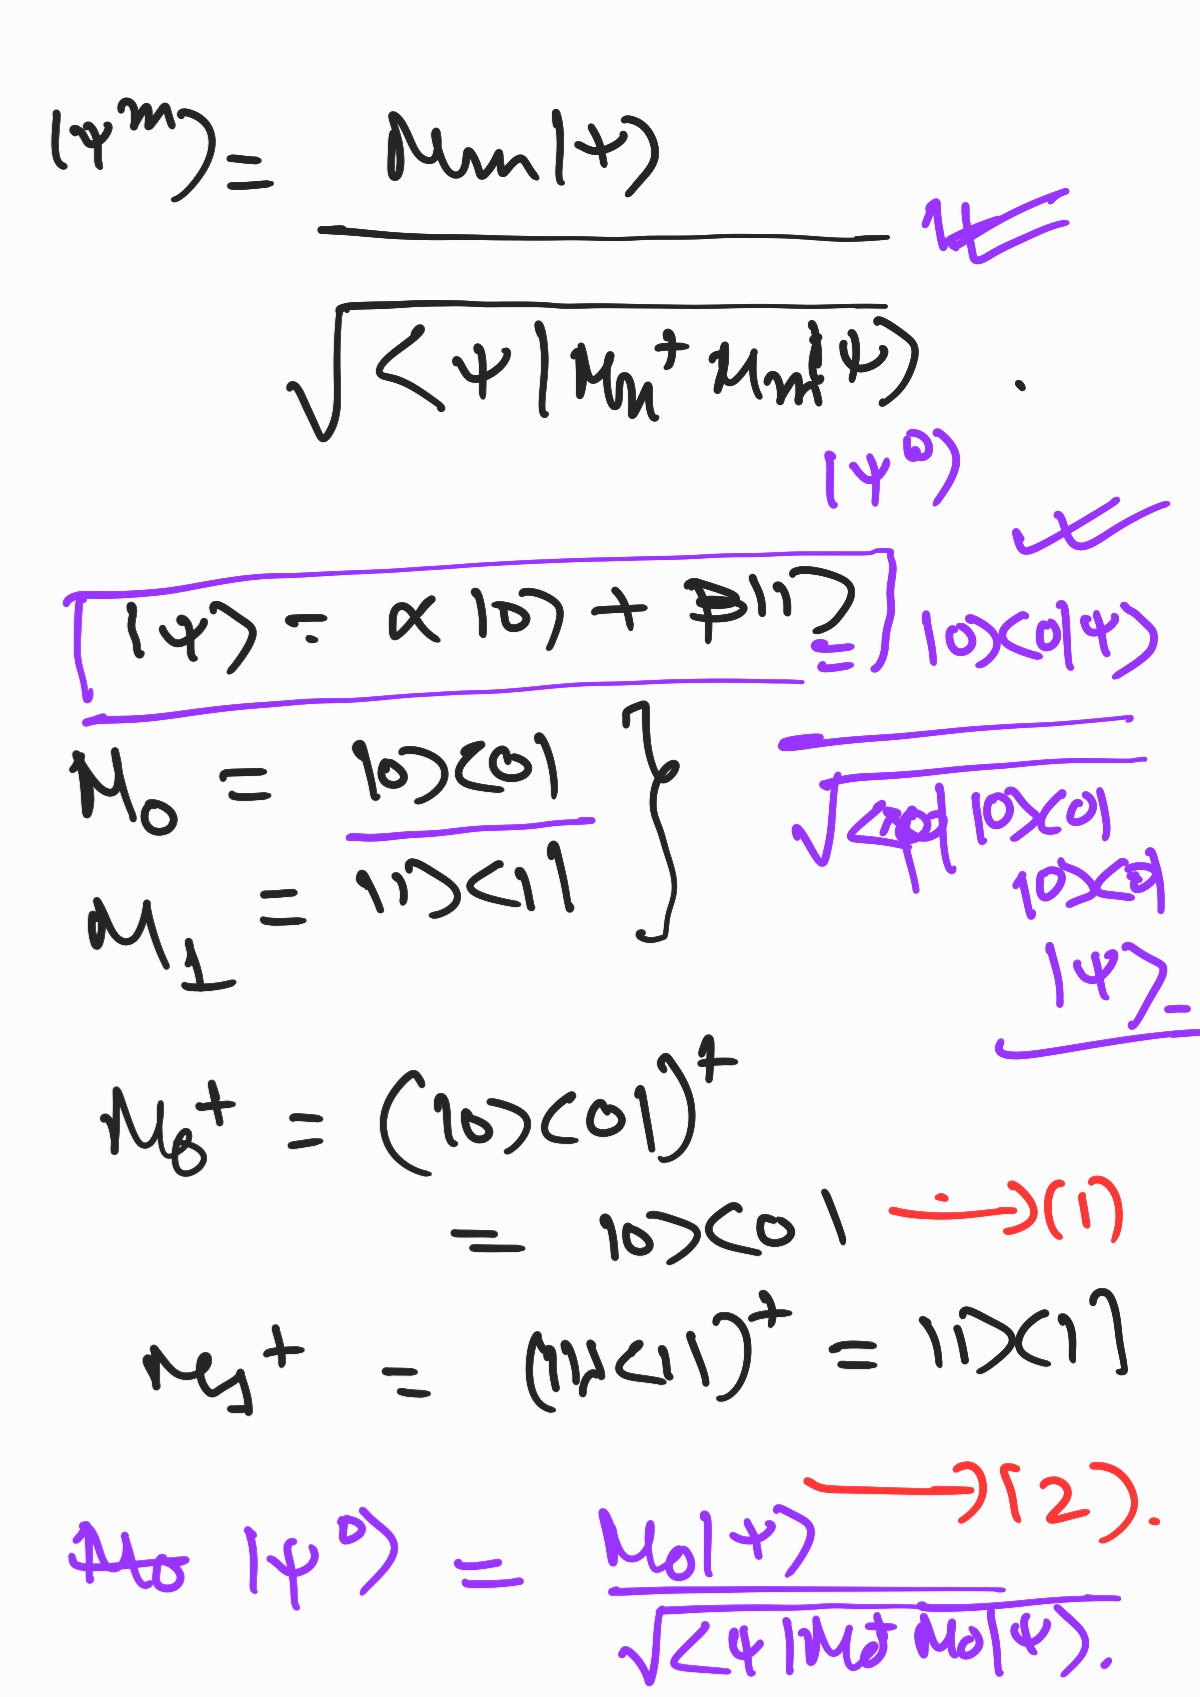 |ψᵐ⟩ = Mm|ψ⟩
√⟨ψ|Mm† Mm|ψ⟩ .
|ψ⁰⟩
|ψ⟩ = α|0⟩ + β|1⟩
= |0⟩⟨0|ψ⟩
M₀ = |0⟩⟨0|
√⟨ψ| |0⟩⟨0|
|0⟩⟨0|
M₁ = |1⟩⟨1|
|ψ⟩
M₀† = (|0⟩⟨0|)†
= |0⟩⟨0| → (1)
M₁† = (|1⟩⟨1|)† = |1⟩⟨1|
→ (2).
|ψ⁰⟩ = M₀|ψ⟩
√⟨ψ|M₀† M₀|ψ⟩.